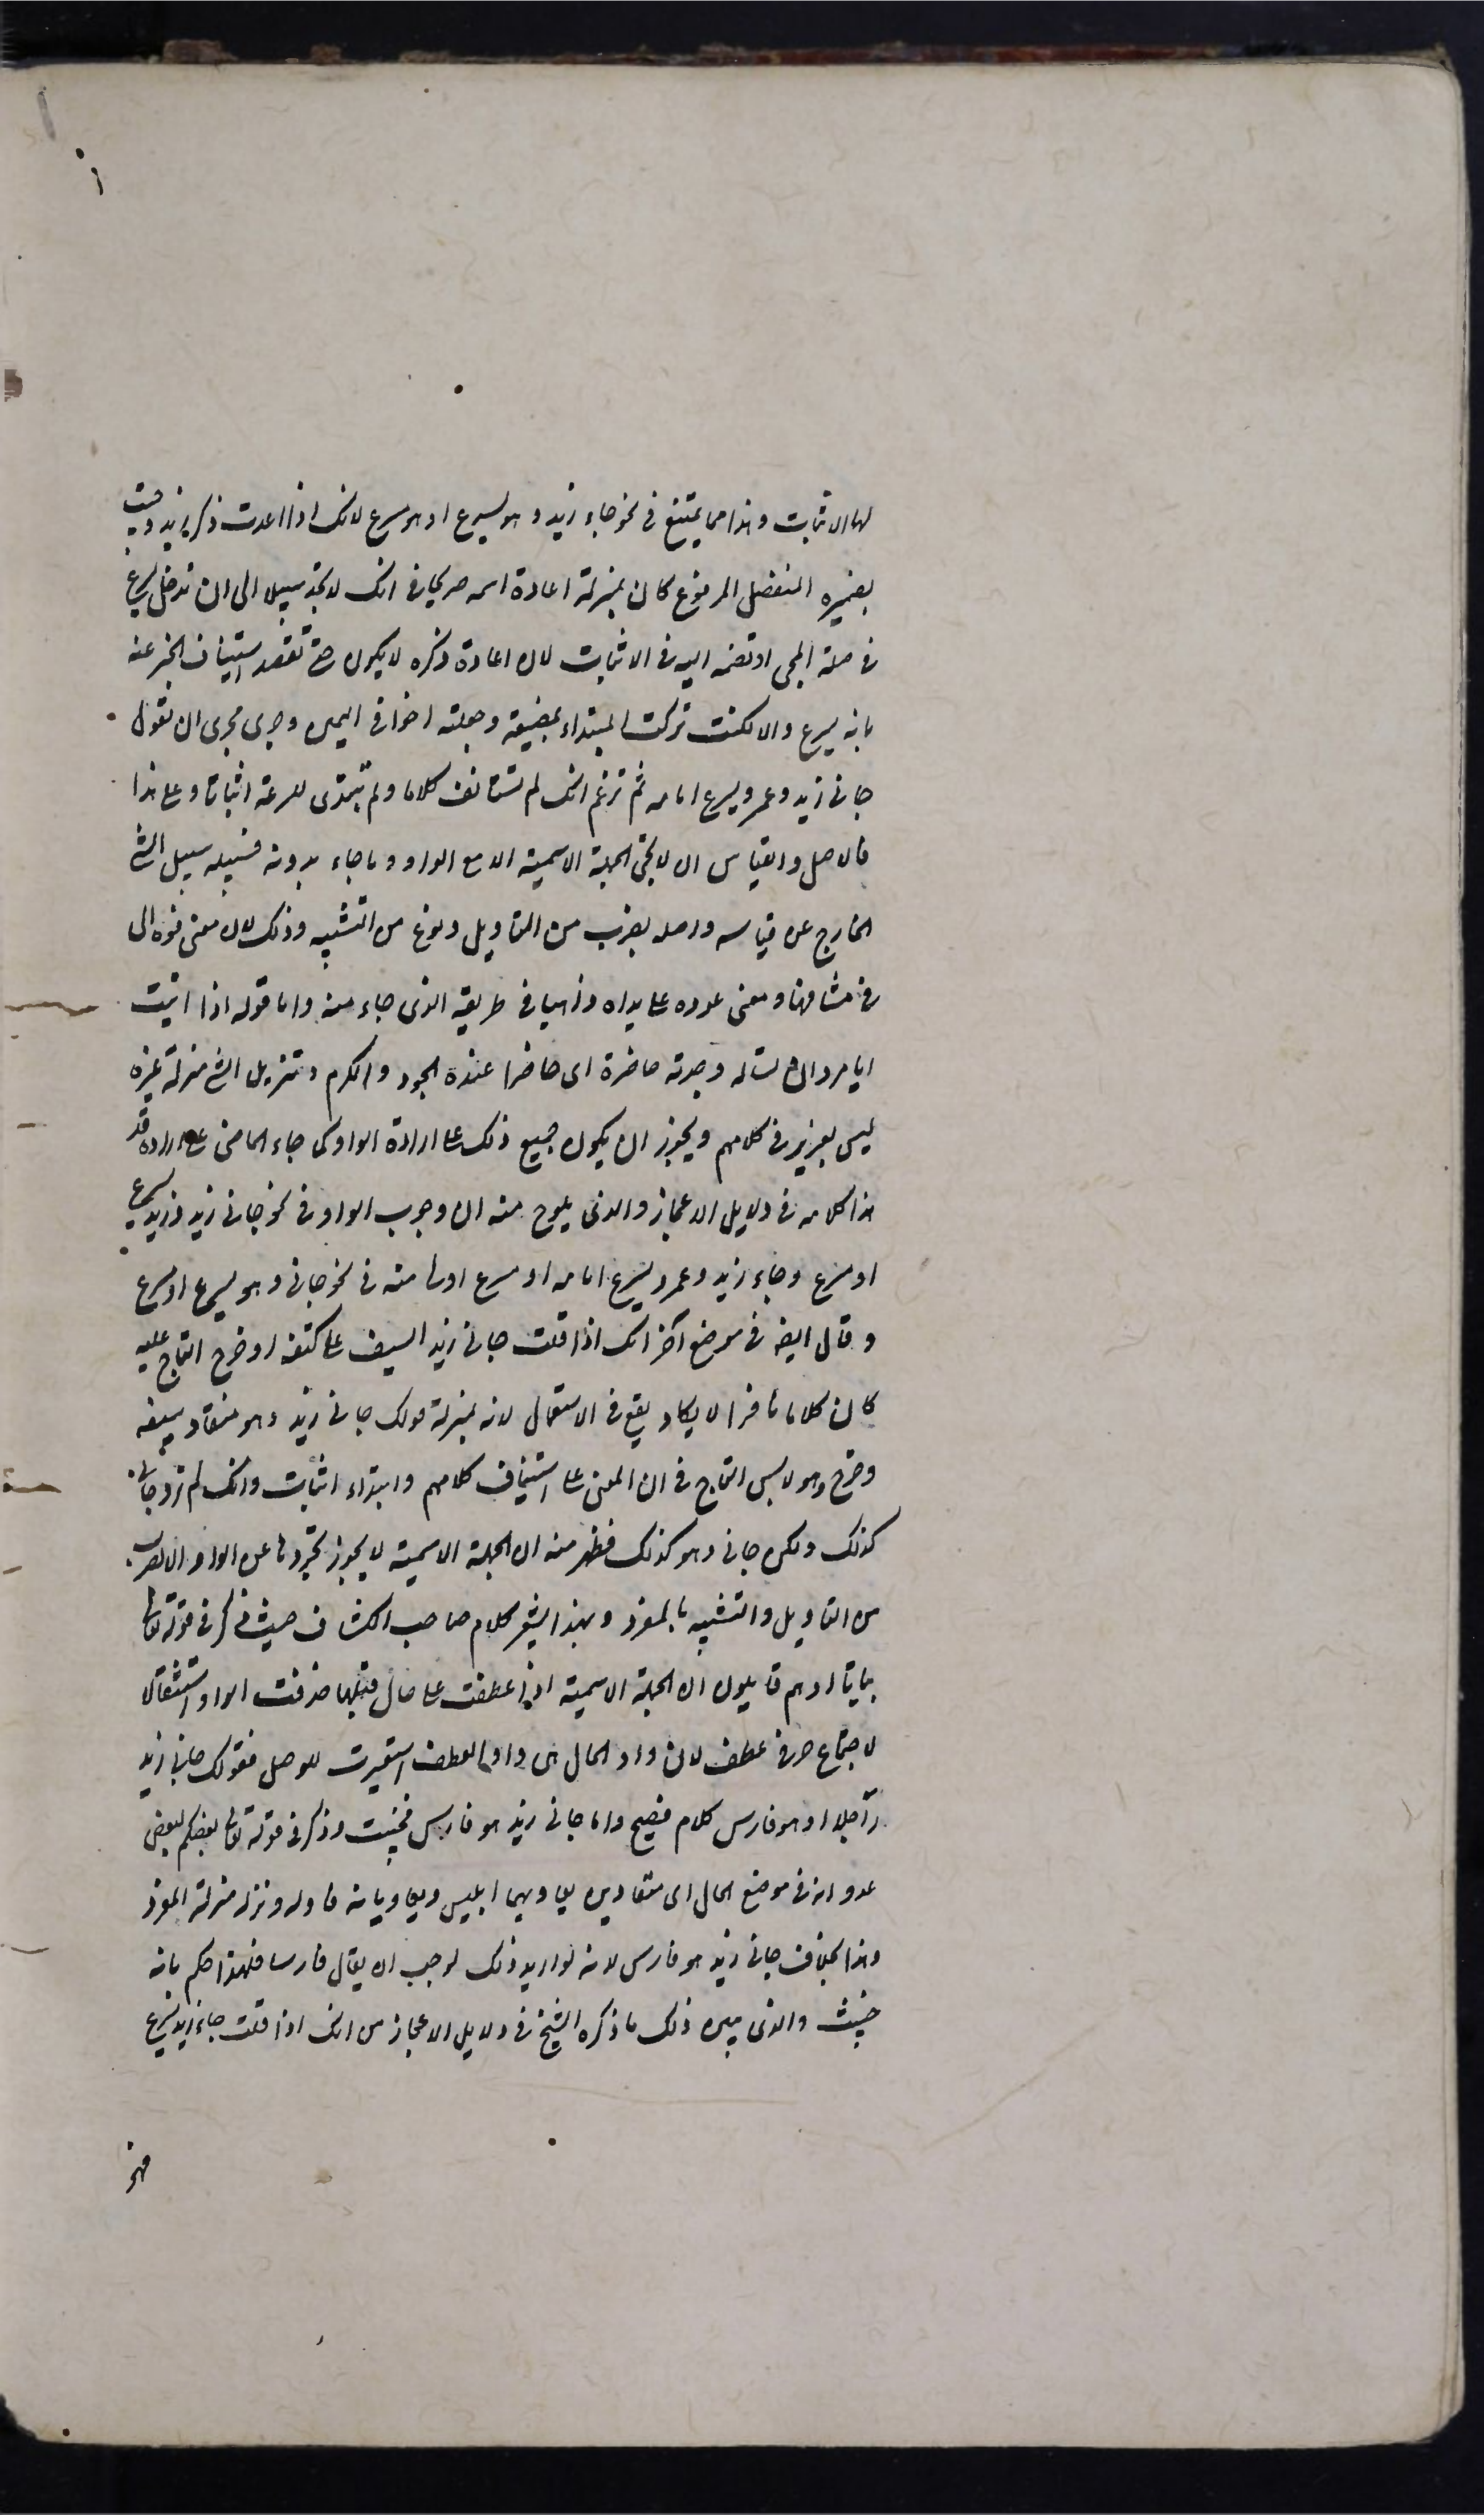 ١
لها الاثبات وهذا مما يمتنع فى نحو جاء زيد وهو يسرع او هو مسرع لانك اذا اعدت ذكر زيد وجئت
بضميره المنفصل المرفوع كان بمنزلة اعادة اسمه صريحا فى انك لا تجد سبيلا الى ان تدخل يسرع
فى صلة المجى وتضمه اليه فى الاثبات لان اعادة ذكره لا يكون حتى تقصد استيناف الخبر عنه
بانه يسرع والا لكنت تركت المبتداء بمضيعة وجعلته لغوا فى البين وجرى مجرى ان تقول
جانى زيد وعمرو يسرع امامه ثم تزعم انك لم تستانف كلاما ولم تبتدى للسرعة اثباتا وعلى هذا
فالاصل والقياس ان لا تجى الجملة الاسمية الا مع الواو وما جاء بدونه فسبيله سبيل الشى
الخارج عن قياسه واصله بضرب من التاويل ونوع من التشبيه وذلك لان معنى فوه الى
فى مشافها ومعنى عوده على بداه ذاهبا فى طريقه الذى جاء منه واما قوله اذا اتيت
ابا مروان تساله وجدته حاضره اى حاضرا عنده الجود والكرم وتنزيل الشى منزلة غيره
ليس بعزيز فى كلامهم ويجوز ان يكون جميع ذلك على ارادة الواو كما جاء الماضى على ارادة قد
هذا كلامه فى دلايل الاعجاز والذى يلوح منه ان وجوب الواو فى نحو جانى زيد وزيد يسرع
او مسرع وجاء زيد وعمرو يسرع امامه او مسرع اولى منه فى نحو جانى وهو يسرع او مسرع
وقال ايضا فى موضع آخر انك اذا قلت جانى زيد السيف على كتفه او خرج التاج عليه
كان كلاما نافرا لا يكاد يقع فى الاستعمال لانه بمنزلة قولك جانى زيد وهو متقلد سيفه
وخرج وهو لابس التاج فى ان المعنى على استيناف كلامهم وابتداء اثبات وانك لم ترد جانى
كذلك ولكن جانى وهو كذلك فظهر منه ان الجملة الاسمية لا يجوز تجردها عن الواو الا لضرب
من التاويل والتشبيه بالمفرد وبهذا يشعر كلام صاحب الكشاف حيث ذكر فى قوله تعالى
بياتا او هم قايلون ان الجملة الاسمية اذا عطفت على حال قبلها حذفت الواو استثقالا
لاجتماع حرفى عطف لان واو الحال هى واو العطف استعيرت للوصل فقولك جانى زيد
راجلا او هو فارس كلام فصيح واما جانى زيد هو فارس فخبيث وذكر فى قوله تعالى بعضكم لبعض
عدو انه فى موضع الحال اى متعادين يعاديهما ابليس ويعاديانه فاوله ونزله منزلة المفرد
وهذا بخلاف جانى زيد هو فارس لانه لو اريد ذلك لوجب ان يقال فارسا فلهذا حكم بانه
خبيث والذى يبين ذلك ما ذكره الشيخ فى دلايل الاعجاز من انك اذا قلت جاء زيد يسرع